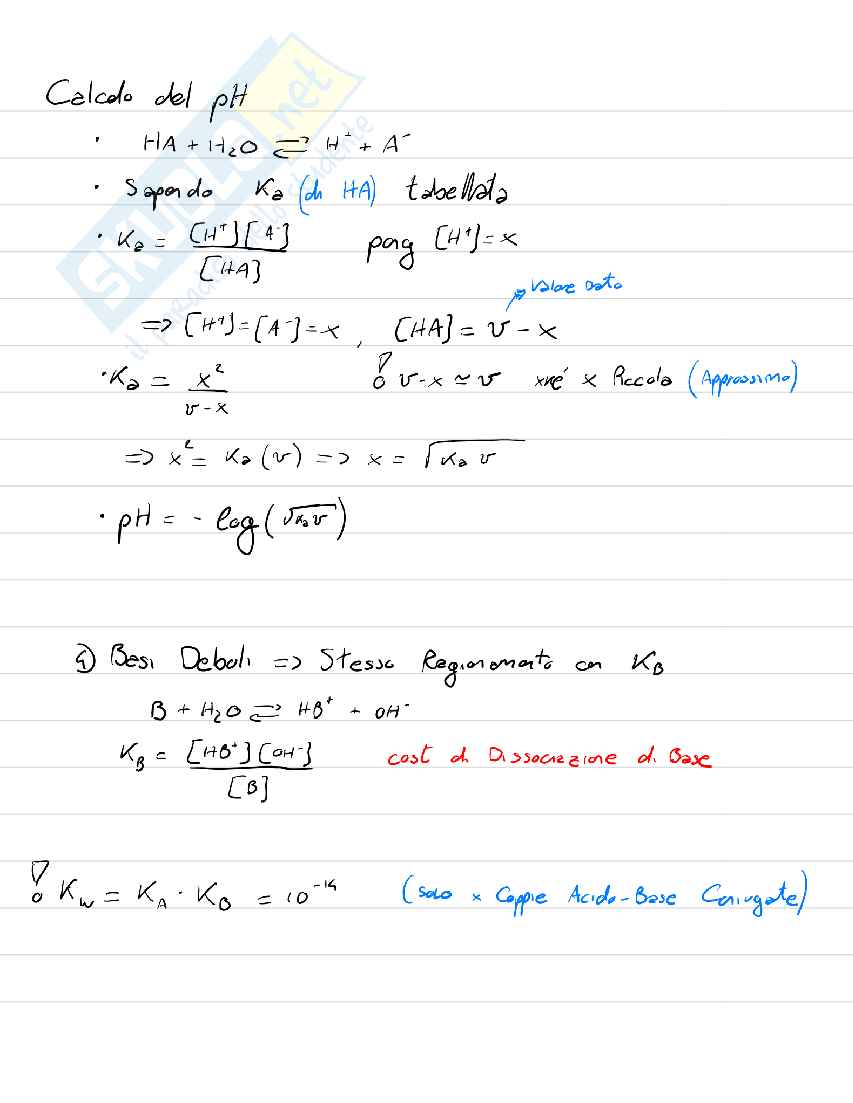 Calcolo del pH
· HA + H₂O ⇌ H⁺ + A⁻
· Sapendo Ka (di HA) tabellata
· Ka = [H⁺][A⁻] / [HA] pong [H⁺] = x
valore dato
=> [H⁺] = [A⁻] = x , [HA] = v - x
· Ka = x² / v - x ! v - x ≃ v xké x Piccola (Approssimo)
=> x² = Ka (v) => x = √Ka v
· pH = - log (√Ka v)
4) Basi Deboli => Stesso Ragionamento con KB
B + H₂O ⇌ HB⁺ + OH⁻
KB = [HB⁺][OH⁻] / [B] cost di Dissociazione di Base
! Kw = KA · KB = 10⁻¹⁴ (solo x Coppie Acido-Base Coniugate)
SKUOLA.net
il paradiso dello studente